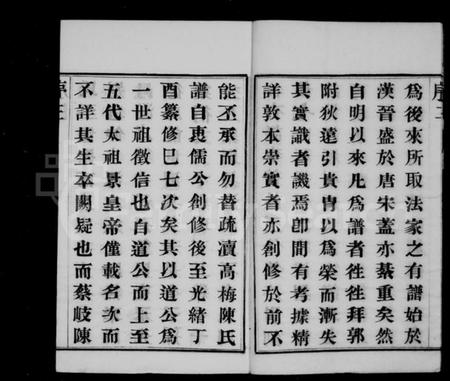 序三
爲後來所取法家之有譜始於
漢晉盛於唐宋蓋亦綦重矣然
自明以來凡爲譜者徃徃拜郭
附狄遠引貴胄以爲榮而漸失
其實識者譏焉卽間有考據精
詳敦本崇實者亦創修於前不
能丕承而勿替疏瀆高梅陳氏
譜自衷儒公創修後至光緒丁
酉纂修已七次矣其以道公爲
一世祖徵信也自道公而上至
五代太祖景皇帝僅載名次而
不詳其生卒闕疑也而蔡岐陳
序三